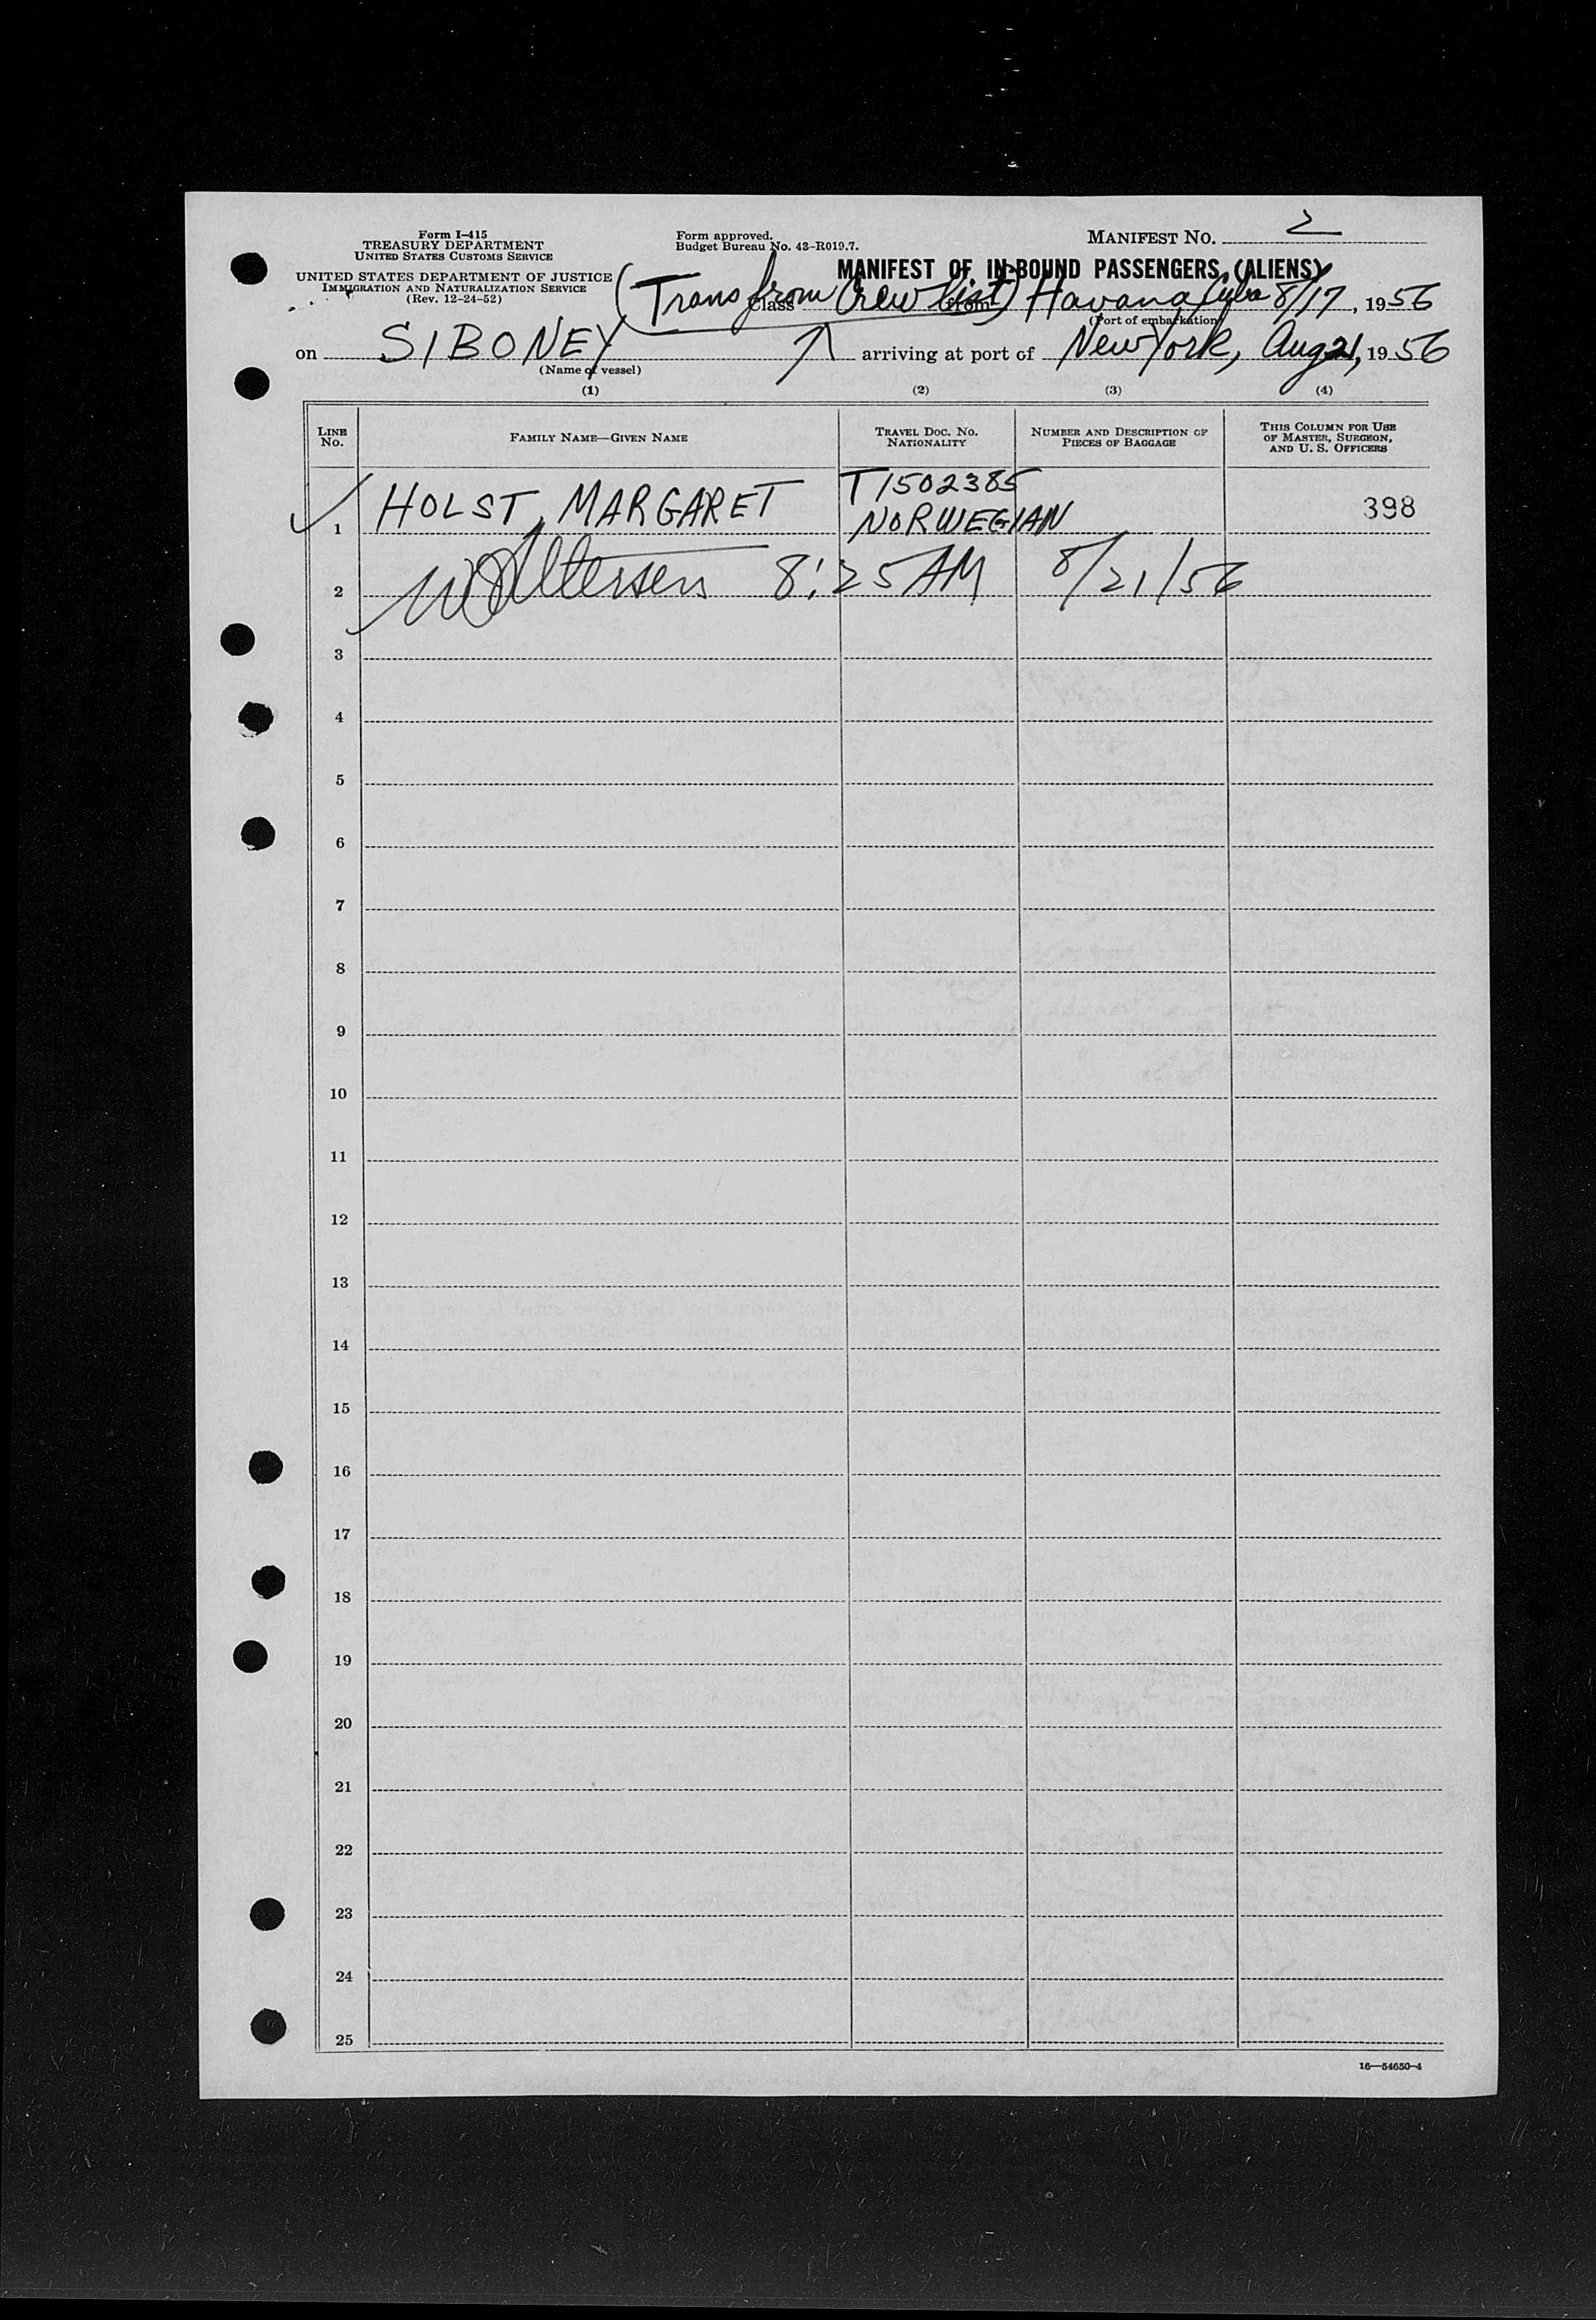 Form I-415
TREASURY DEPARTMENT
UNITED STATES CUSTOMS SERVICE
UNITED STATES DEPARTMENT OF JUSTICE
IMMIGRATION AND NATURALIZATION SERVICE
(Rev. 12-24-52)
Form approved.
Budget Bureau No. 43-R019.7.
MANIFEST NO. 2
MANIFEST OF IN-BOUND PASSENGERS (ALIENS)
(Trans from Crew List) Class from Havana Cuba 8/17, 1956
(Port of embarkation)
on SIBONEY arriving at port of New York, Aug 21, 1956
(Name of vessel)
(1) (2) (3) (4)
LINE NO.
FAMILY NAME—GIVEN NAME
TRAVEL DOC. NO. NATIONALITY
NUMBER AND DESCRIPTION OF PIECES OF BAGGAGE
THIS COLUMN FOR USE OF MASTER, SURGEON, AND U. S. OFFICERS
1 HOLST, MARGARET T1502385 NORWEGIAN 398
2 8:25 AM 8/21/56
3
4
5
6
7
8
9
10
11
12
13
14
15
16
17
18
19
20
21
22
23
24
25
16—54650-4